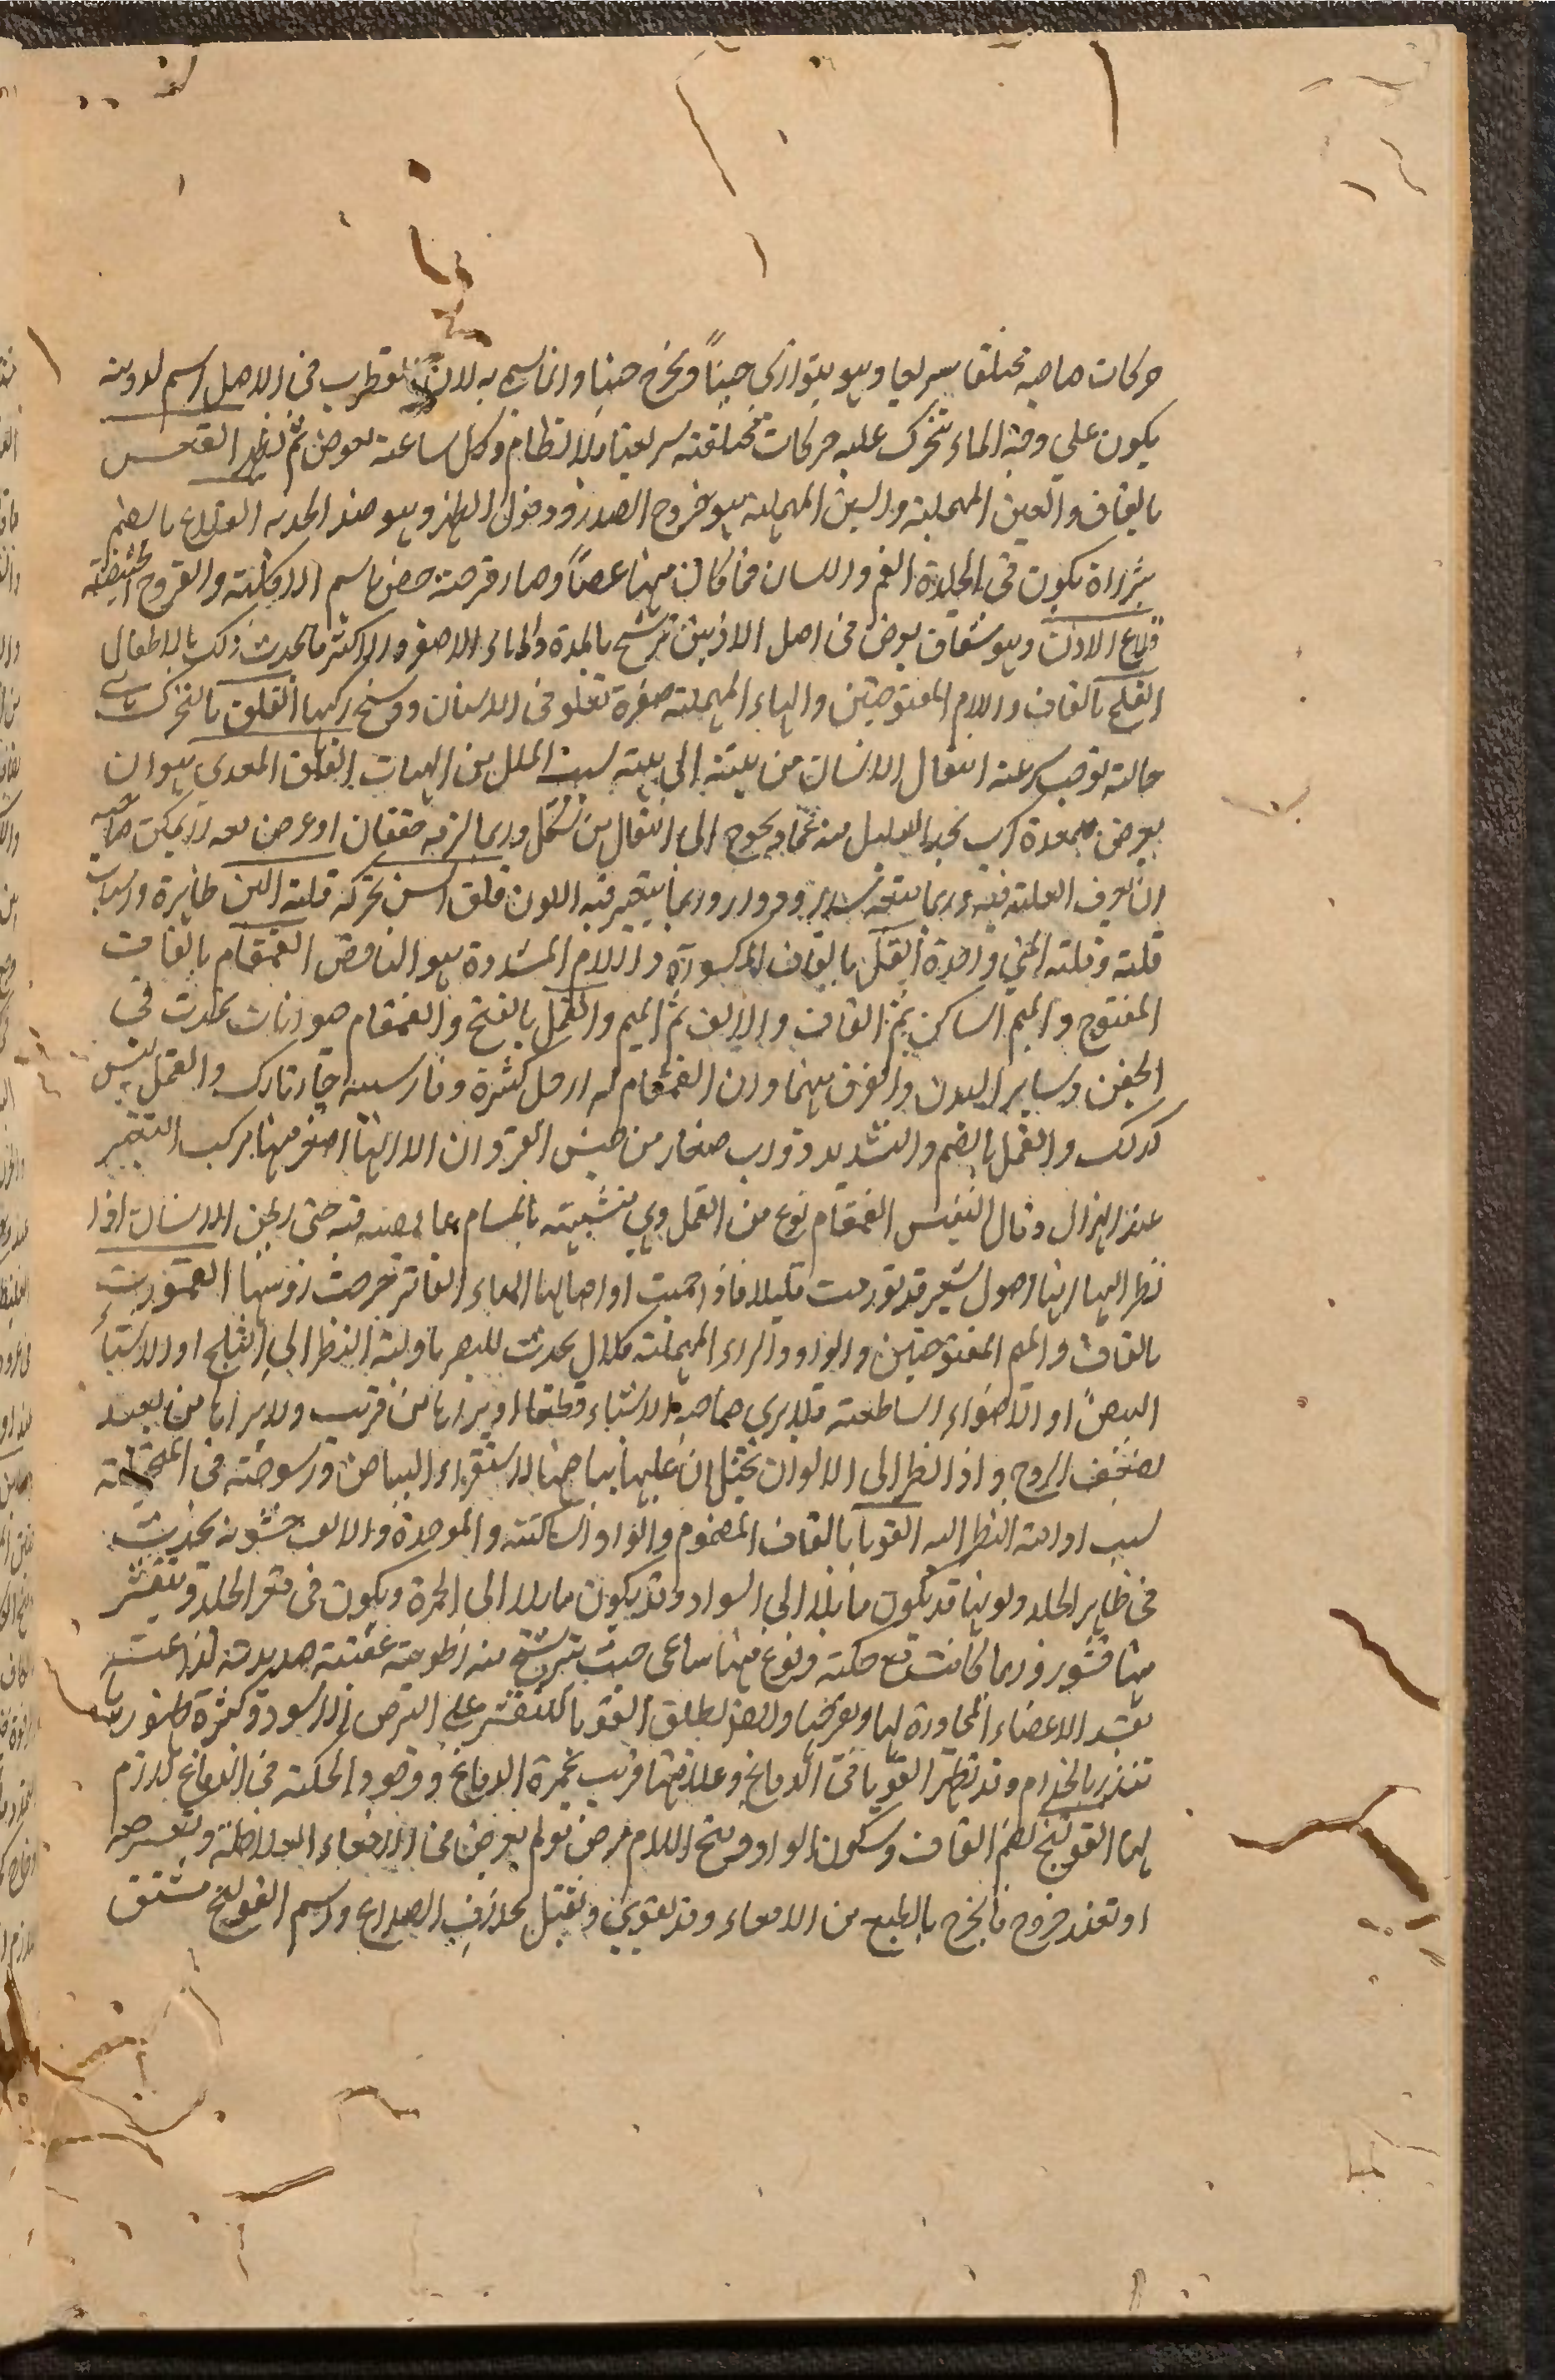 حركات صاحبه مختلفا سريعا وهو يتوارى حينا ويخرج حينا وانما سمي به لان القطرب في الاصل اسم لدويبة
يكون على وجه الماء تتحرك عليه حركات مختلفة سريعا بلا نظام وكل ساعة يغوص ثم يظهر القعس
بالقاف والعين المهملة والسين المهملة هو خروج الصدر ودخول الظهر وهو ضد الحدبة القلاع بالضم
بثرات يكون في الجلدة الفم واللسان فما كان منها غضا وصار قرحة خص باسم الاكلة والقروح الخبيثة
قلاع الاذن وهو شقاق يعرض في اصل الاذنين ترشح بالمدة والماء الاصفر والاكثر ما يحدث ذلك بالاطفال
القلح بالقاف واللام المفتوحتين والحاء المهملة صفرة تعلو في الاسنان ووسخ يركبها القلق بالتحريك
حالة توجب سرعة انتقال الانسان من هيئة الى هيئة لسبب الملل من الهيات القلق المعدي هو ان
يعرض للمعدة كرب يجد العليل منه غما ويحوج الى انتقال من شكل وربما لزمه خفقان او عرض معه لا يمكن صاحبه
ان يعرف العلة فيه وربما يتبعه سدر ودوار وربما يتغير فيه اللون قلق السن تحركه قلة اللبن ظاهرة واسباب
قلته وقلة المني واحدة القل بالقاف المكسورة واللام المشددة هو النافض القمقام بالقاف
المفتوح والميم الساكن ثم القاف والالف ثم الميم والقمل بالفتح والقمقام حيوانات يحدث في
الجفن وساير البدن والفرق بينهما وان القمقام له ارجل كثيرة وفارسيه چارتارك والقمل ليس
كذلك والقمل بالضم والتشديد دواب صغار من جنس القردان الا انها اصغر منها يركب البعير
عند الهزال وقال النفيس القمقام نوع من القمل وهي متشبثة بالمسام غايصة فيه حتى يظن الانسان اذا
نظر اليها انها اصول الشعر قد تورمت قليلا فاذا حميت او اصابها الماء الفاتر خرجت رؤسها القمور
بالقاف والميم المفتوحتين والواو والراء المهملة كلال يحدث للبصر بادامة النظر الى الثلج او الاشياء
البيض او الاضواء الساطعة فلا يرى صاحبه الاشياء قطعا او يراها من قريب ولا يراها من بعيد
لضعف الروح واذا نظر الى الالوان تخيل ان عليها بياضا لاستقرار البياض ورسوخه في المتخيلة
لسبب ادامة النظر اليه القوبا بالقاف المضموم والواو الساكنة والموحدة والالف خشونة يحدث
في ظاهر الجلد ولونها قد يكون مايلا الى السواد وقد يكون مايلا الى الحمرة ويكون في قعر الجلد وتتقشر
منها قشور وربما كانت مع حكة ونوع منها ساعي خبيث يترشح منه رطوبة عفنة صديدية لذاعة
يفسد الاعضاء المجاورة لها ويقرحها وايضا يطلق القوبا المتقشر على البرص الاسود وكثرة ظهورها
تنذر بالجذام وقد تظهر القوبا في الدماغ وعلامتها قريب بحمرة الدماغ ووجود الحكة في الدماغ لازم
لها القولنج بضم القاف وسكون الواو وفتح اللام مرض مولم يعرض في الامعاء الغلاظ ويتعسر معه
او تعذر خروج ما يخرج بالطبع من الامعاء وقد يقوى ويقتل بخلاف الصداع واسم القولنج مشتق